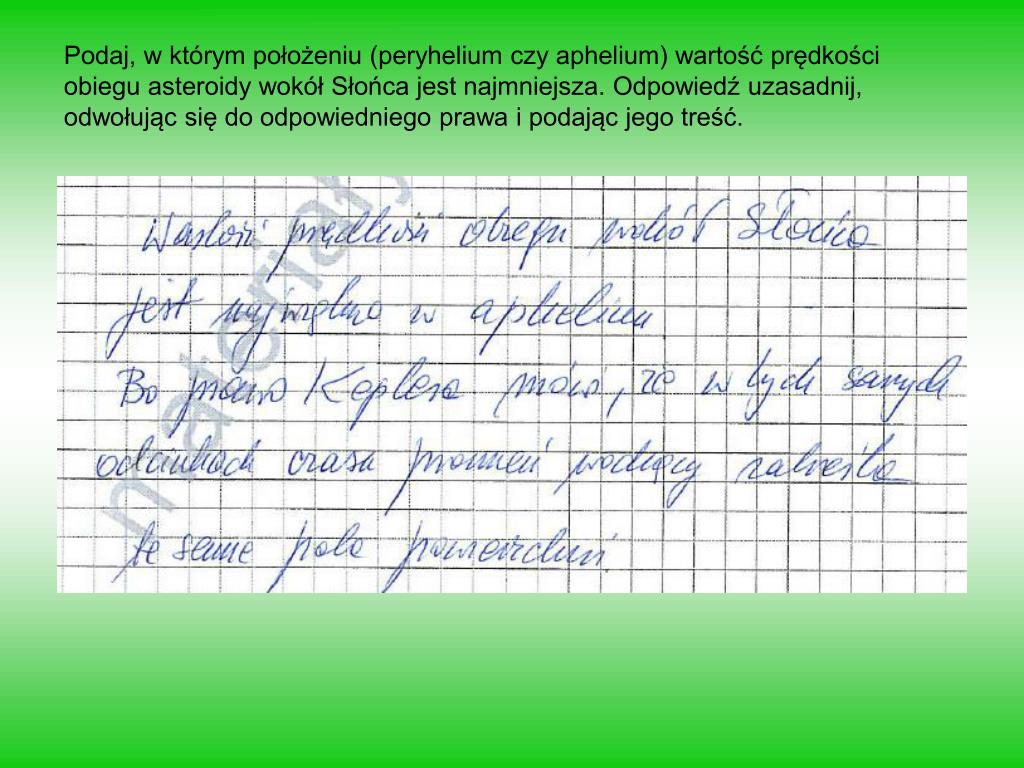 Podaj, w którym położeniu (peryhelium czy aphelium) wartość prędkości
obiegu asteroidy wokół Słońca jest najmniejsza. Odpowiedź uzasadnij,
odwołując się do odpowiedniego prawa i podając jego treść.
Wartość prędkości obiegu wokół Słońca
jest w aphelium
Bo prawo Keplera mówi, że w tych samych
odcinkach czasu promień wodzący zakreśla
te same pola powierzchni.